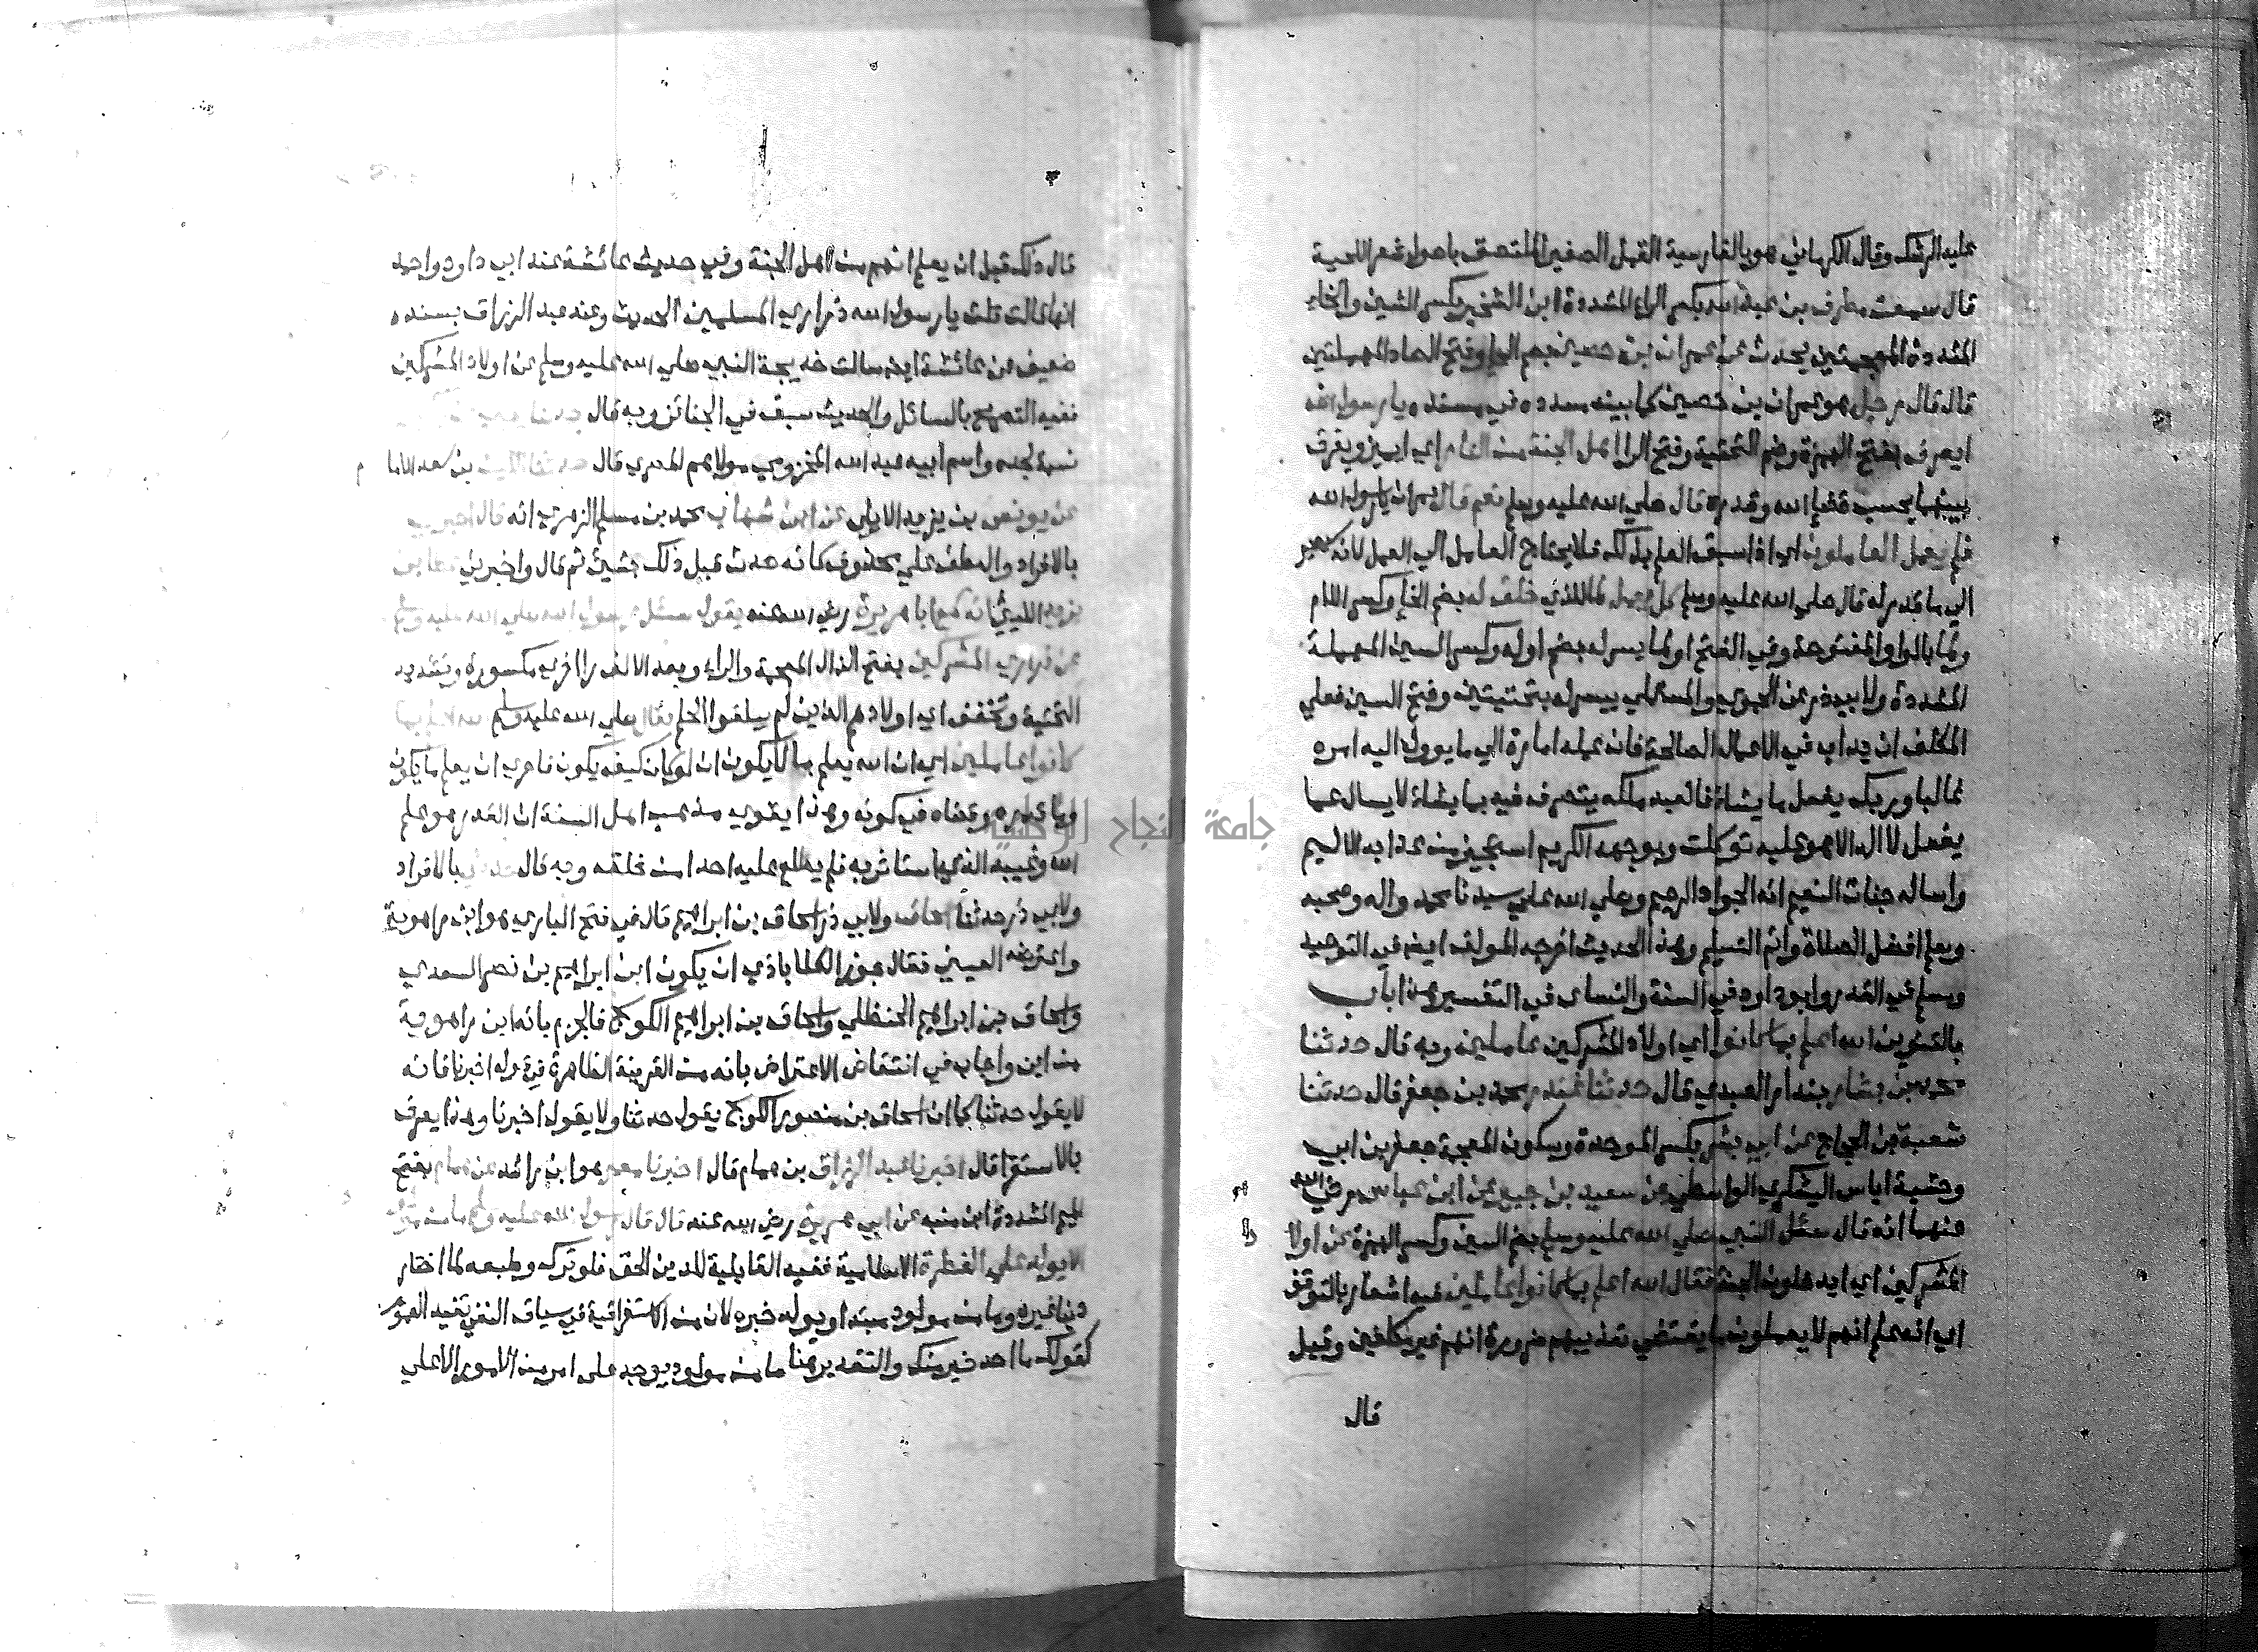 عليه الرشك وقال الكرماني هو بالفارسية القمل الصغير الملتصق باصول شعر اللحية
قال سمعت مطرف بن عبد الله بكسر الراء المشددة ابن الشخير بكسر الشين والخاء
المشددة المعجمتين يحدث عن عمران بن حصين بضم الحا وفتح الصاد المهملتين
قال قال رجل هو عمران بن حصين كما بينه مسدد في مسنده يا رسول الله
ايعرف بفتح الهمزة وضم التحتية وفتح الرا اهل الجنة من النار اي ايميز ويفرق
بينهما بحسب قضا الله وقدره قال صلي الله عليه وسلم نعم قال عمران يا رسول الله
فلم يعمل العاملون اي اذا سبق العلم بذلك فلا يحتاج العامل الي العمل لانه سيصير
الي ما قدر له قال صلي الله عليه وسلم كل يعمل لما للذي خلق له بضم الخا وكسر اللام
ولما بالواو المفتوحة وفي الفتح او لما يسر له بضم اوله وكسر السين المهملة
المشددة ولابي ذر عن الحموي والمستملي ييسر له بتحتيتين وفتح السين فعلي
المكلف ان يداب في الاعمال الصالحة فان عمله امارة الي ما يوول اليه امره
غالبا وربك يفعل ما يشاء فالعبد ملكه يتصرف فيه بما يشاء لا يسال عما
يفعل لا اله الا هو عليه توكلت وبوجهه الكريم استجير من عذابه الاليم
واساله جنات النعيم انه الجواد الرحيم وصلي الله علي سيدنا محمد واله وصحبه
وسلم افضل الصلاة واتم التسليم وهذا الحديث اخرجه المولف ايضا في التوحيد
ومسلم في القدر وابو داود في السنة والنساى في التفسير هذا باب
بالتنوين الله اعلم بما كانوا اي اولاد المشركين عاملين وبه قال حدثنا
محمد بن بشار بندار العبدي قال حدثنا غندر محمد بن جعفر قال حدثنا
شعبة بن الحجاج عن ابي بشر بكسر الموحدة وسكون المعجمة جعفر بن ابي
وحشية اياس اليشكري الواسطي عن سعيد بن جبير عن ابن عباس رضي الله
عنهما انه قال سئل النبي صلي الله عليه وسلم بضم السين وكسر الهمزة عن اولا
المشركين اي ايدخلون الجنة فقال الله اعلم بما كانوا عاملين فيه اشعار بالتوقف
اي انه علم انهم لا يعملون ما يقتضي تعذيبهم ضرورة انهم غير مكلفين وقيل
قال
قال ذلك قبل ان يعلم انهم من اهل الجنة وفي حديث عائشة عند ابي داود واحمد
انها قالت قلت يا رسول الله ذراري المسلمين الحديث وعند عبد الرزاق بسنده
ضعيف عن عائشة ايضا سالت خديجة النبي صلي الله عليه وسلم عن اولاد المشركين
ففيه التصريح بالسائل والحديث سبق في الجنائز وبه قال
نسبة لجده واسم ابيه عبد الله المخزومي مولاهم المصري قال حدثنا الليث بن سعد الاما
عن يونس بن يزيد الايلي عن ابن شهاب محمد بن مسلم الزهري انه قال اخبرني
بالافراد والعطف علي محذوف كانه حدث قبل ذلك بشيئ ثم قال واخبرني عطا بن
يزيد الليثي انه سمع ابا هريرة رضي الله عنه يقول سئل رسول الله صلي الله عليه وسلم
عن ذراري المشركين بفتح الذال المعجمة والراء وبعد الالف را اخري مكسورة وتشديد
التحتية وتخفف اي اولادهم الذين لم يبلغوا الحلم فقال صلي الله عليه وسلم الله اعلم بما
كانوا عاملين اي ان الله يعلم ما لا يكون ان لو كان كيف يكون فاحري ان يعلم ما يكون
وما قدره وقضاه في كونه وهذا يقوي مذهب اهل السنة ان القدر هو علم
الله وغيبه الذي استاثر به فلم يطلع عليه احدا من خلقه وبه قال حدثني بالافراد
ولابي ذر حدثنا اسحاق ولابي ذر اسحاق بن ابراهيم قال في فتح الباري هو ابن راهوية
واعترضه العيني فقال جوز الكلاباذي ان يكون ابن ابراهيم بن نصر السعدي
واسحاق بن ابراهيم الحنظلي واسحاق بن ابراهيم الكوسج فالجزم بانه ابن راهوية
من اين واجاب في انتقاض الاعتراض بانه من القرينة الظاهرة في قوله اخبرنا فانه
لا يقول حدثنا كما ان اسحاق بن منصور الكوسج يقول حدثنا ولا يقول اخبرنا وهذا يعرف
بالاستقرا قال اخبرنا عبد الرزاق بن همام قال اخبرنا معمر هو ابن راشد عن همام بفتح
الميم المشددة ابن منبه عن ابي هريرة رضي الله عنه قال قال رسول الله صلي الله عليه وسلم ما من مولود
الا يولد علي الفطرة الاسلامية ففيه القابلية للدين الحق فلو ترك وطبعه لما اختار
دينا غيره وما من مولود مبتدا ويولد خبره لان من الاستغراقية في سياق النفي تفيد العموم
كقولك ما احد خير منك والتقدير هنا ما من مولود يوجد على امر من الامور الا علي